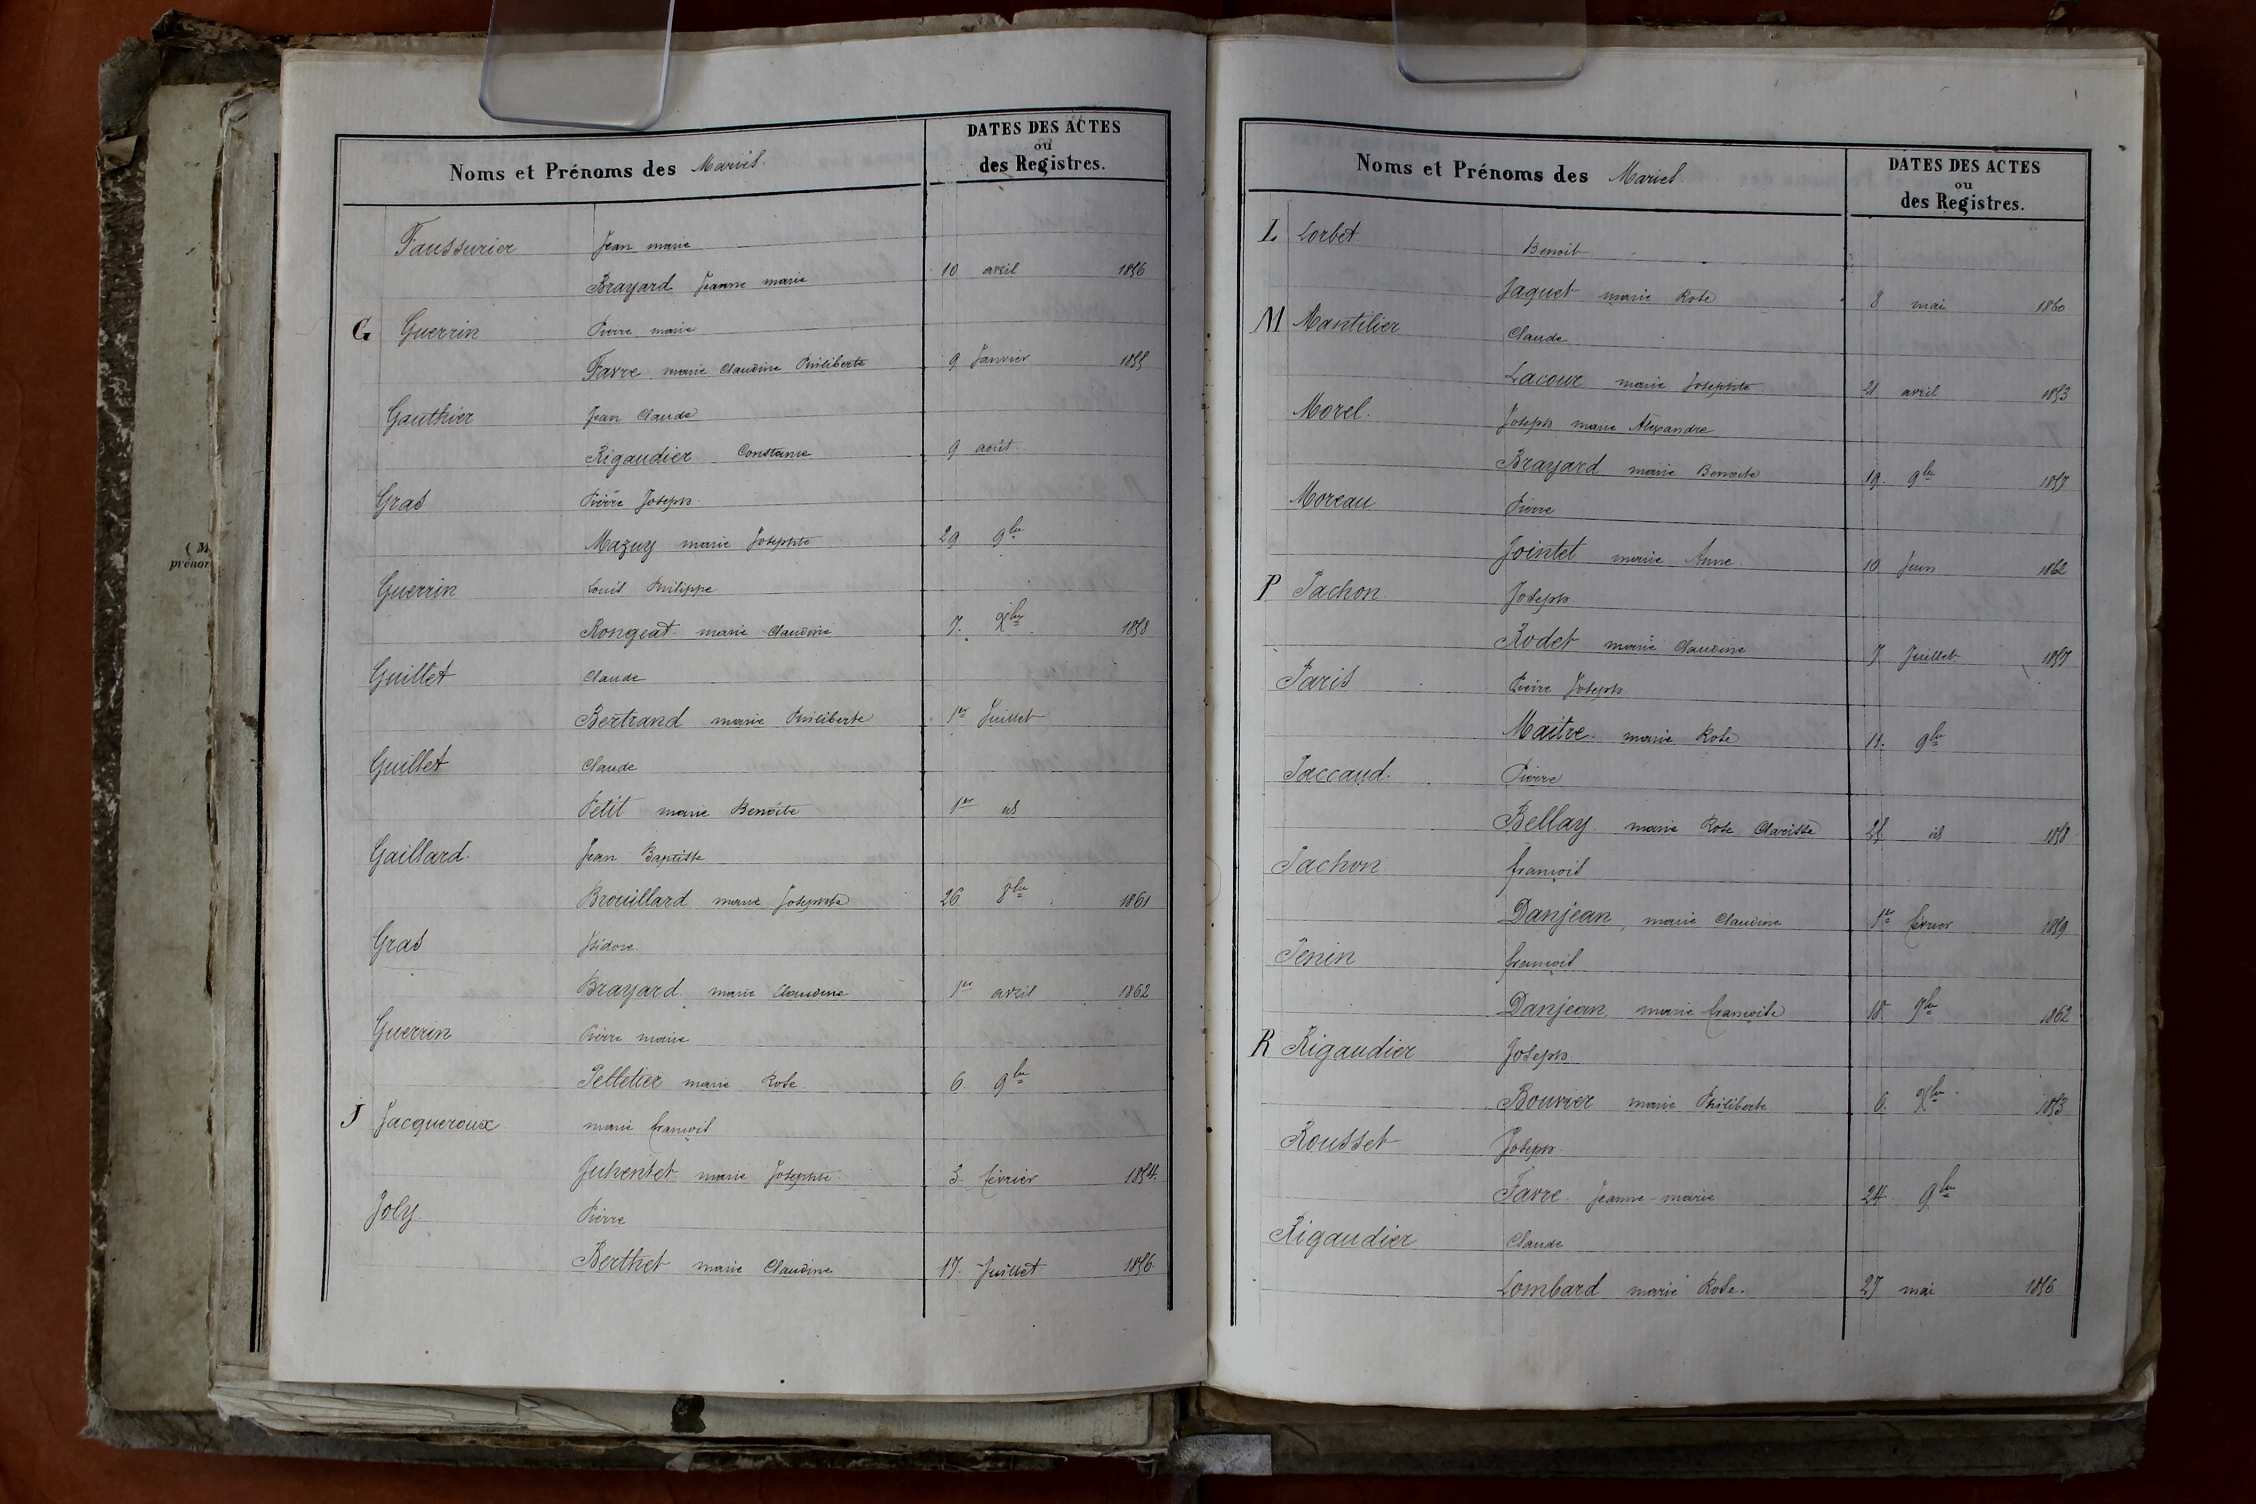 ( M
prénor
Noms et Prénoms des Mariés.
DATES DES ACTES
ou
des Registres.
Faussurier Jean marie
Brayard Jeanne marie 10 avril 1856
G Guerrin Pierre marie
Favre marie Claudine Philiberte 9 Janvier 1855
Gauthier Jean Claude
Rigaudier Constance 9 août
Gras Pierre Joseph
Mazuy marie Josephte 29 9bre
Guerrin Louis Philippe
Rongeat marie Claudine 7. Xbre 1858
Guillet Claude
Bertrand marie Philiberte 1er Juillet
Guillet Claude
Petit marie Benoîte 1er id
Gaillard Jean Baptiste
Brouillard marie Josephte 26 8bre 1861
Gras Isidore
Brayard marie Claudine 1er avril 1862
Guerrin Pierre marie
Pelletier marie Rose 6. 9bre
J Jacqueroux marie françois
Juhentet marie Josephte 3 février 1854.
Joly Pierre
Berthet marie Claudine 17. Juillet 1856.
Noms et Prénoms des Mariés.
DATES DES ACTES
ou
des Registres.
L Lorbet Benoit
Jaquet marie Rose 8 mai 1860
M Mantelier Claude
Lacour marie Josephte 21 avril 1853
Morel. Joseph marie Alexandre
Brayard marie Benoite 19. 9bre 1857
Moreau Pierre
Jointet marie Anne 10 Juin 1862
P Pachon Joseph
Rodet marie Claudine 7 Juillet 1857
Paris Pierre Joseph
Maitre marie Rose 11. 9bre
Paccaud. Pierre
Bellay marie Rose Clarisse id 1858
Pachon françois
Danjean, marie Claudine 1er février 1859
Penin françois
Danjean marie françoise 18 9bre 1862
R Rigaudier Joseph
Bouvier marie Philiberte 6. Xbre 1853
Rousset Joseph
Favre Jeanne-marie 24. 9bre
Rigaudier Claude
Lombard marie Rose. 27 mai 1856